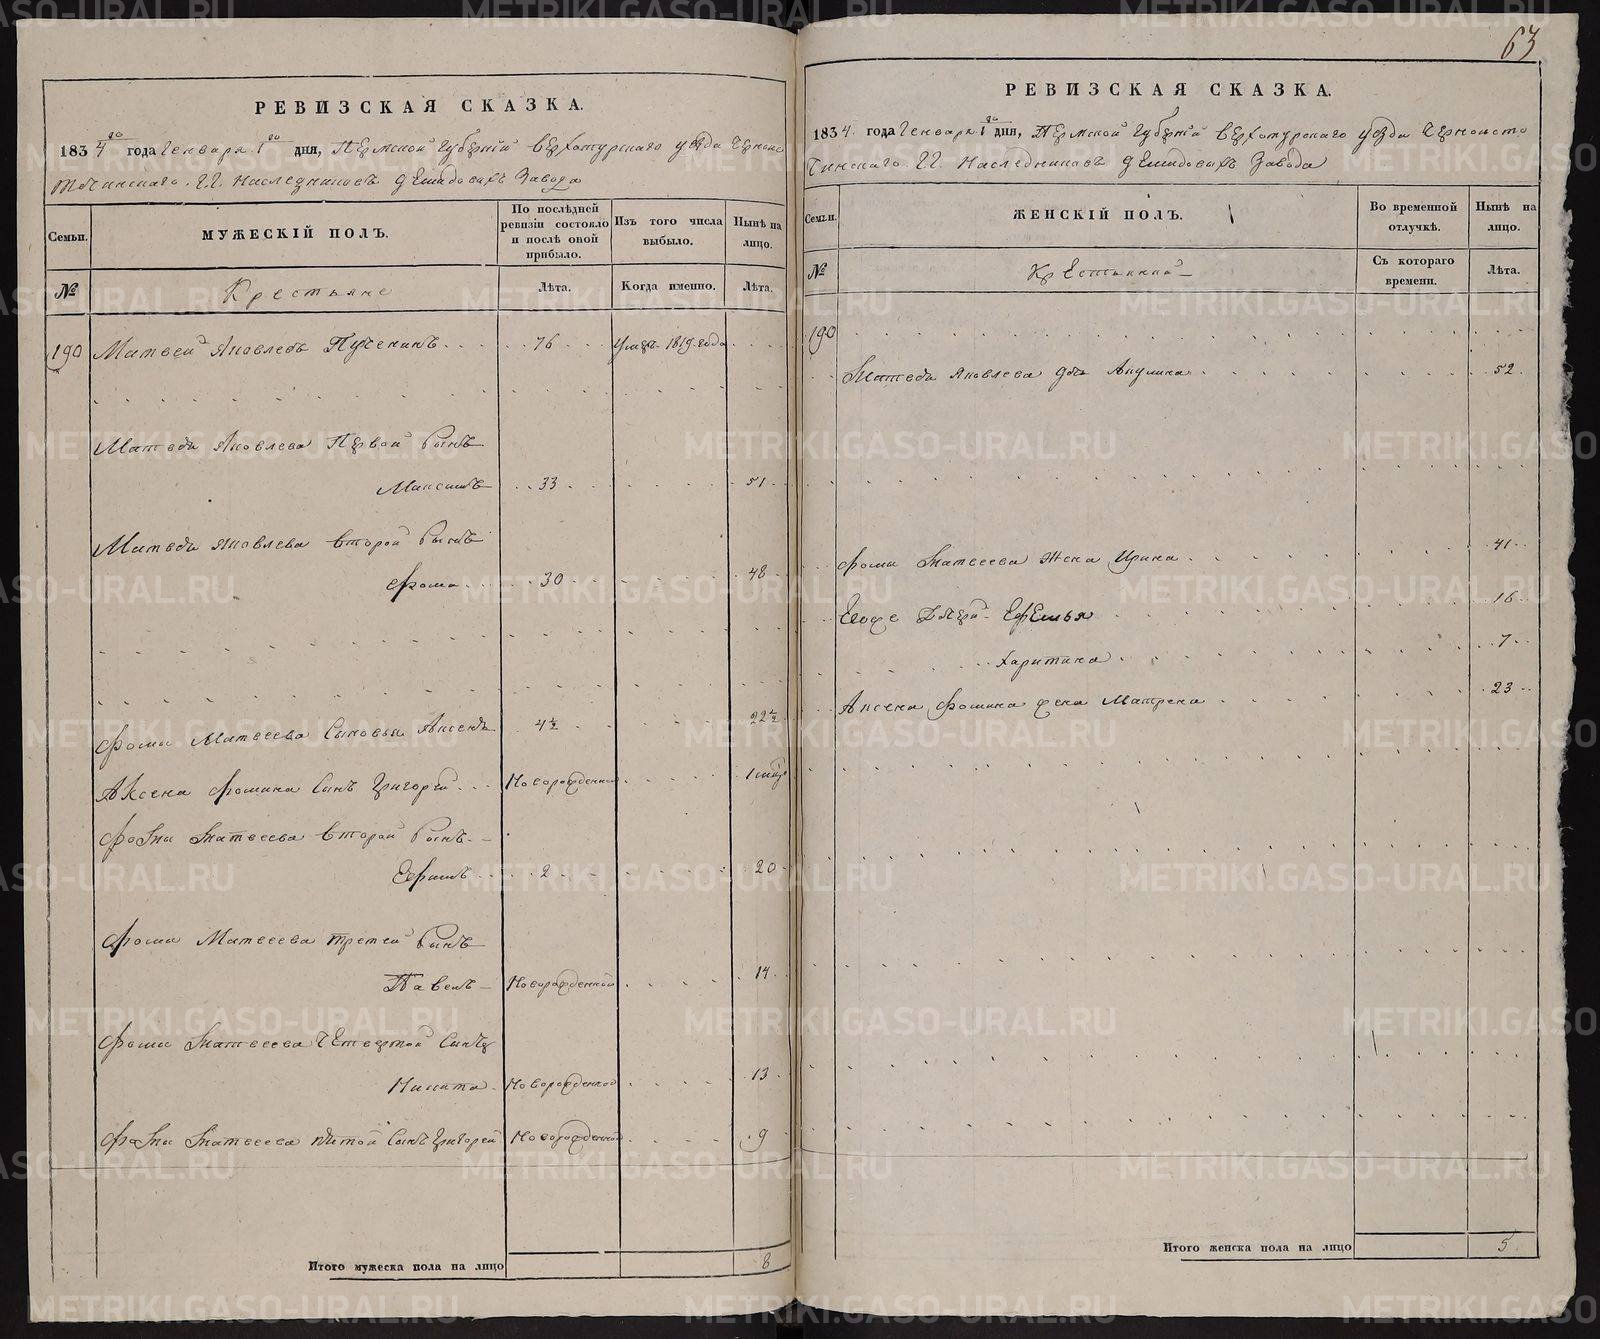 63
РЕВИЗСКАЯ СКАЗКА.
1834го года Генваря 1го дня, Пермской Губернiи Верхотурскаго уѣзда Черноис
точинскаго. Г.Г. Наслѣдниковъ Демидовыхъ Завода
Семьи.
МУЖЕСКIЙ ПОЛЪ.
По послѣдней ревизiи состояло и послѣ оной прибыло.
Изъ того числа выбыло.
Нынѣ на лицо.
№
Крестьяне
Лѣта.
Когда именно.
Лѣта.
190 Матвей Яковлевъ 76 Умеръ 1819 года
Матвѣя Яковлева Первой Сынъ
Максимъ 33 51
Матвѣя Яковлева Второй Сынъ
Фома 30 48
Фомы Матвеева Сыновья Аксенъ 4½ 22½
Аксена Фомина Сынъ Григорей Новорожденной 1
Фомы Матвеева Второй Сынъ
Ефимъ 2 20
Фомы Матвеева Третей Сынъ
Павелъ Новорожденной 14
Фомы Матвеева Четвертой Сынъ
Никита Новорожденной 13
Фомы Матвеева пятой Сынъ Григорей Новорожденной 9
Итого мужеска пола на лицо 8
РЕВИЗСКАЯ СКАЗКА.
1834. года Генваря 1го дня, Пермской Губернiи Верхотурскаго уѣзда Черноисто
чинскаго. Г.Г. Наслѣдниковъ Демидовыхъ Завода
Семьи.
ЖЕНСКIЙ ПОЛЪ.
Во временной отлучкѣ.
Нынѣ на лицо.
№
Съ котораго времени.
Лѣта.
190
Матвѣя Яковлева дочь Акулина 52
Фомы Матвеева Жена Ирина 41
Ево же Дочери Ефимья 16
Харитина 7
Аксена Фомина жена Матрена 23
Итого женска пола на лицо 5
METRIKI.GASO-URAL.RU